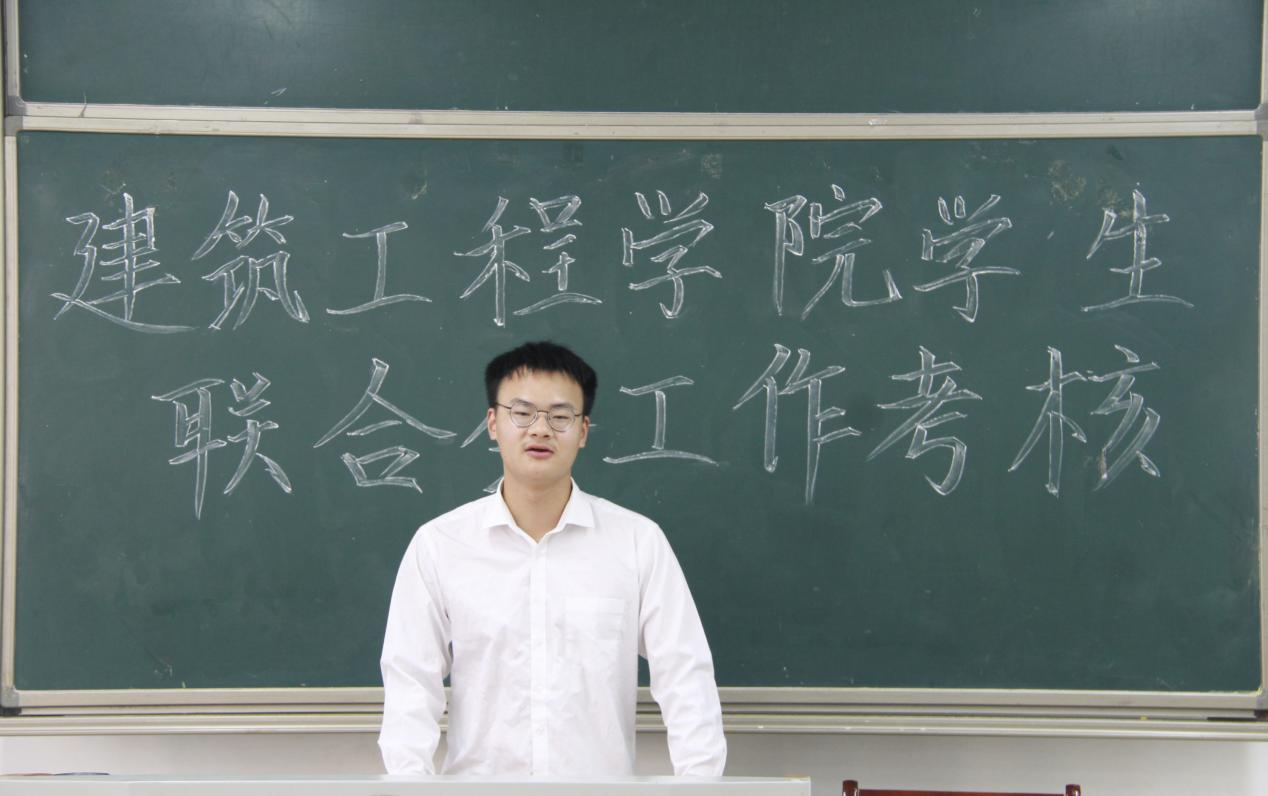 建筑工程学院学生
联合会工作考核